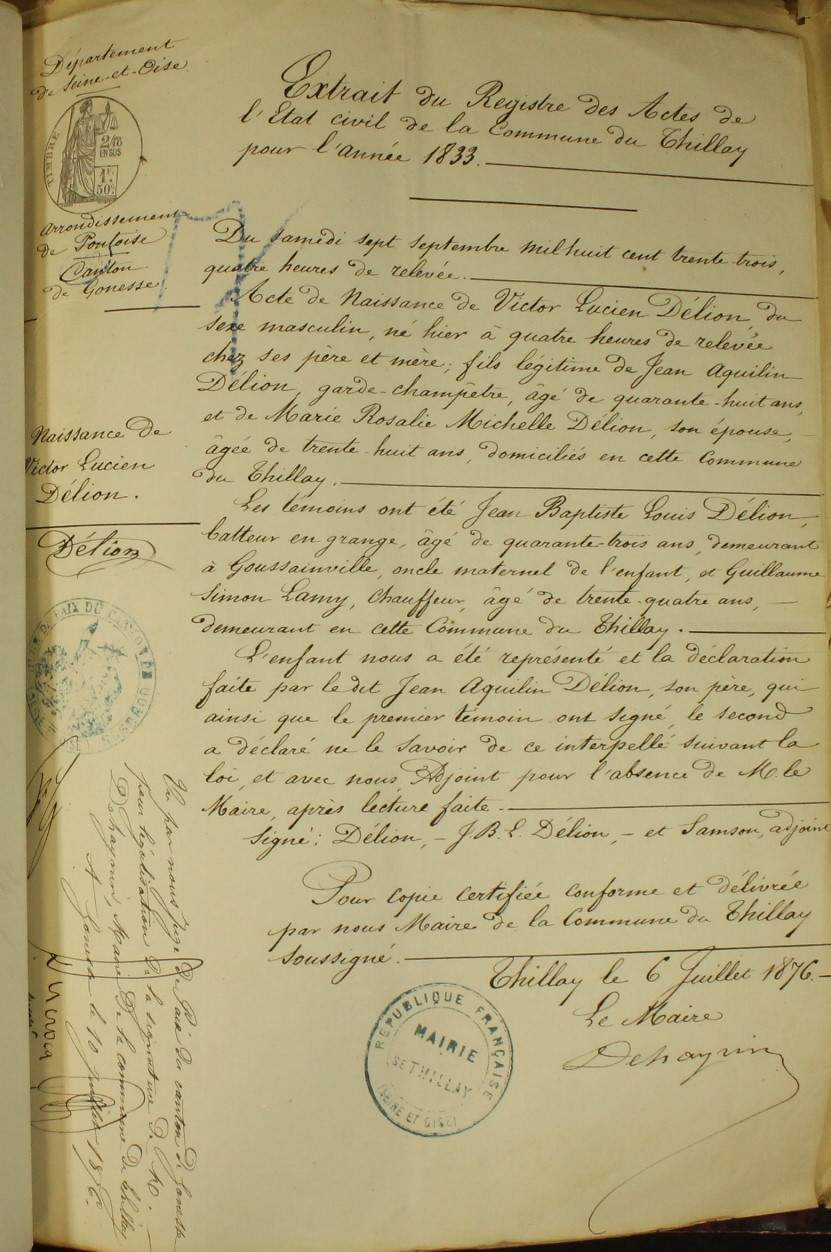 Département
de Seine-et-Oise.
TIMBRE
2/10
EN SUS
1F.
50c.
Arrondissement
de Pontoise
Canton
de Gonesse.
Naissance de
Victor Lucien
Délion.
Délion
Extrait du Registre des Actes de
l'Etat civil de la Commune du Thillay
pour l'année 1833.
Du samedi sept septembre mil huit cent trente trois,
quatre heures de relevée.
Acte de Naissance de Victor Lucien Délion, du
sexe masculin, né hier à quatre heures de relevée
chez ses père et mère; fils légitime de Jean Aquilin
Délion, garde-champêtre, âgé de quarante-huit ans,
et de Marie Rosalie Michelle Délion, son épouse,
âgée de trente-huit ans, domiciliés en cette Commune
du Thillay.
Les témoins ont été Jean Baptiste Louis Délion,
batteur en grange, âgé de quarante-trois ans, demeurant
à Goussainville, oncle maternel de l'enfant, et Guillaume
Simon Lamy, Chauffeur, âgé de trente-quatre ans,
demeurant en cette Commune du Thillay.
L'enfant nous a été représenté et la déclaration
faite par le dit Jean Aquilin Délion, son père, qui
ainsi que le premier témoin ont signé, le second
a déclaré ne le savoir de ce interpellé suivant la
loi, et avec nous Adjoint pour l'absence de M. le
Maire, après lecture faite.
Signé: Délion, - J. B. L. Délion, - et Samson, adjoint
Pour copie certifiée conforme et délivrée
par nous Maire de la Commune du Thillay
soussigné.
Thillay le 6 Juillet 1876.
Le Maire
Dehaynin
RÉPUBLIQUE FRANÇAISE
MAIRIE
DE THILLAY
(SEINE ET OISE)
Vu par nous juge de Paix du canton de Gonesse
pour légalisation de la signature de M.
Dehaynin, Maire de la commune de Thillay
A Gonesse le 10 juillet 1876.